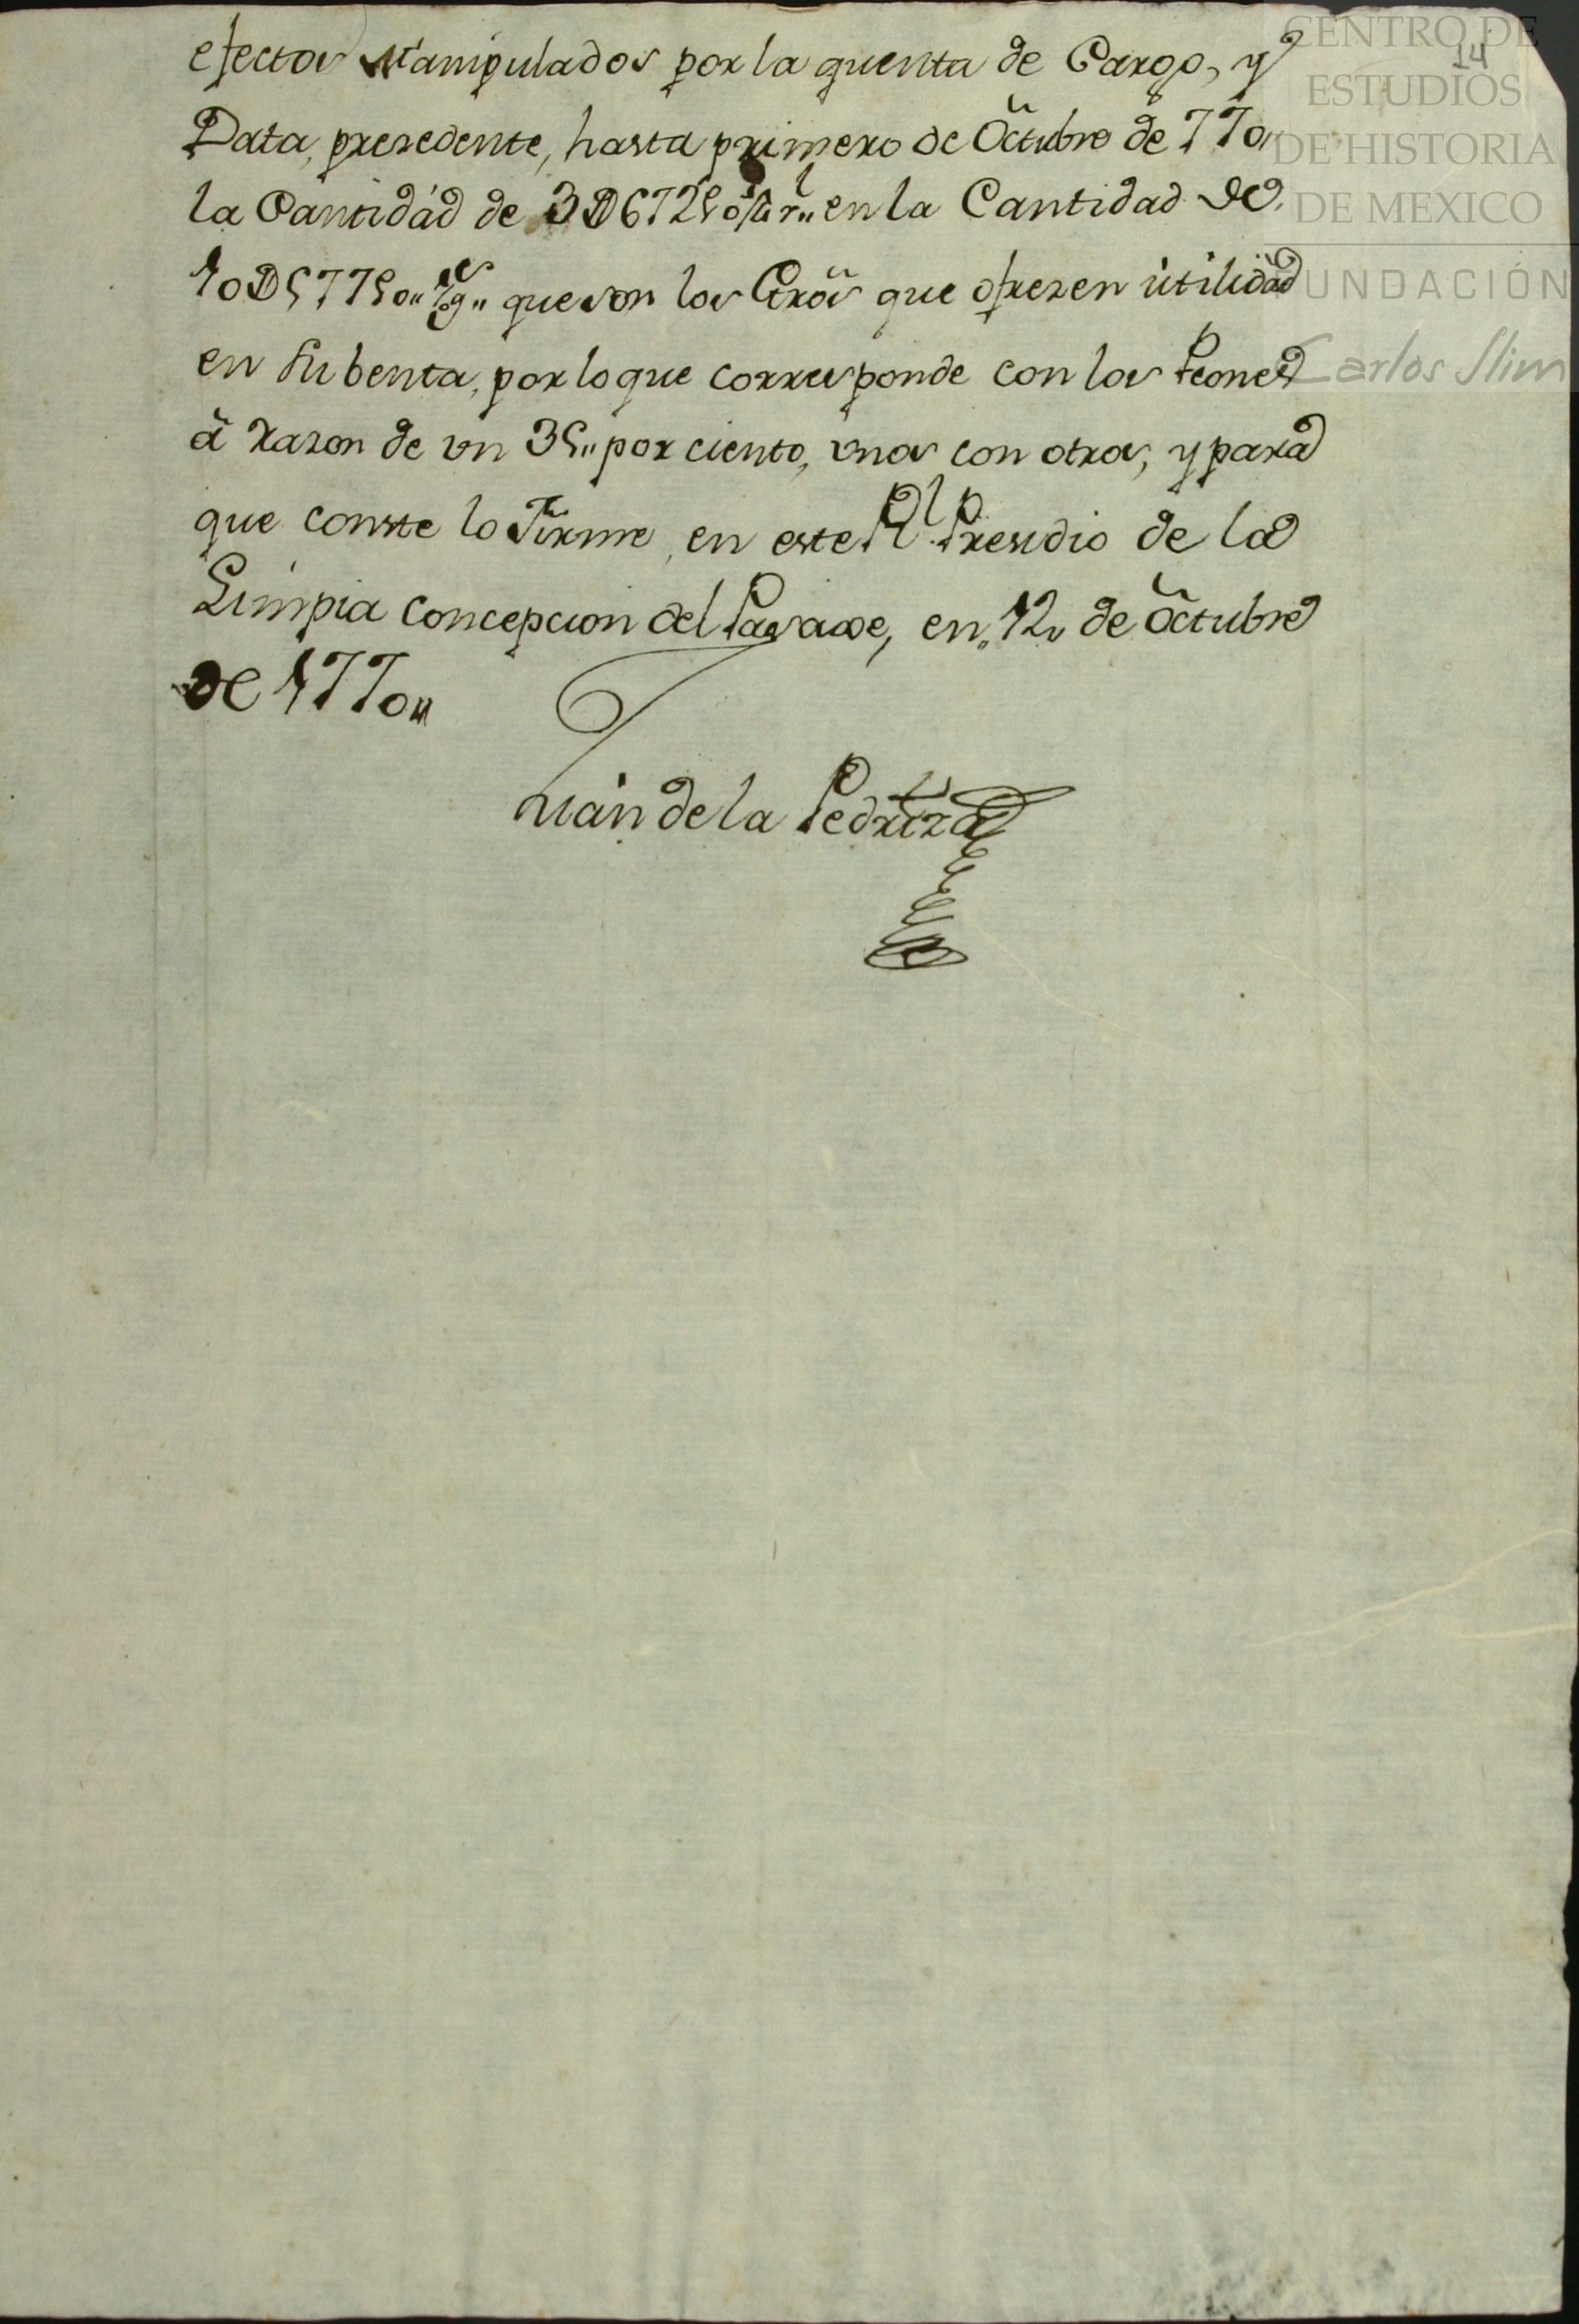 14
efectos Manipulados por la quenta de Cargo, y
Data, presedente, hasta primero de Octubre de 770,,
la Cantidád de en la Cantidad de
que son los que ofrezen utilidad
en su benta, por lo que corresponde con los Peones
á razon de un 35,, por ciento, unos con otros, y para
que conste lo Firme, en este Rl. Presidio de la
Limpia Concepcion del Pasaxe, en,, 12,, de Octubre
de 1770,,
Juan de la Pedriza
CENTRO DE
ESTUDIOS
DE HISTORIA
DE MEXICO
FUNDACIÓN
Carlos Slim